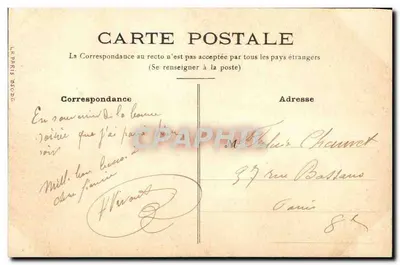 CARTE POSTALE
La Correspondance au recto n'est pas acceptée par tous les pays étrangers
(Se renseigner à la poste)
Correspondance
Adresse
En souvenir de la bonne
soirée que j'ai passée hier
soir
Mille bons baisers
CPAPHIL
Chauvet
37 rue Bassano
Paris
8e